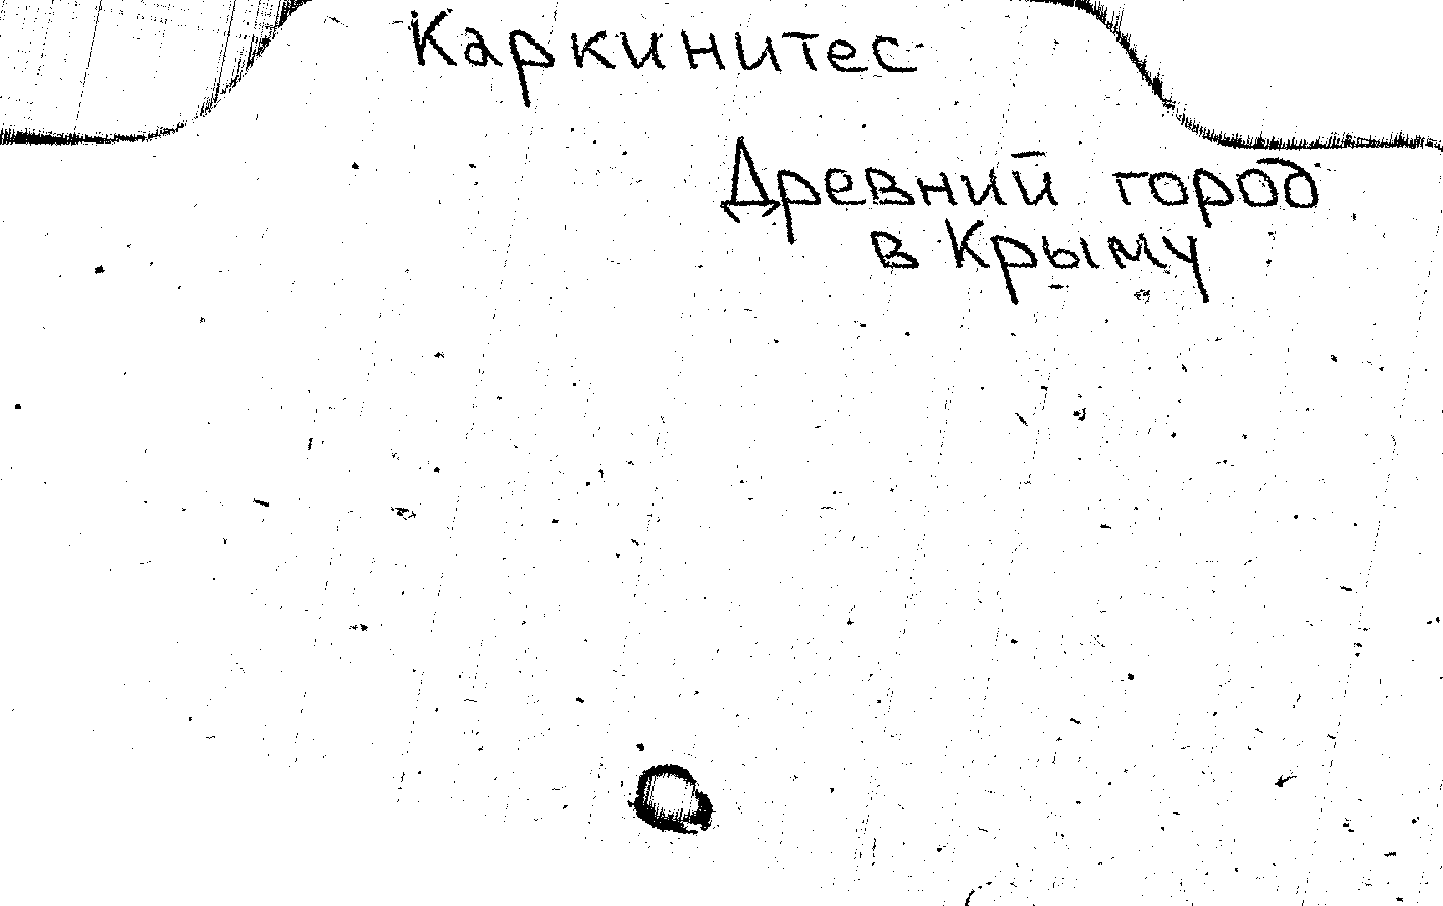 Каркинитес
Древний город
в Крыму